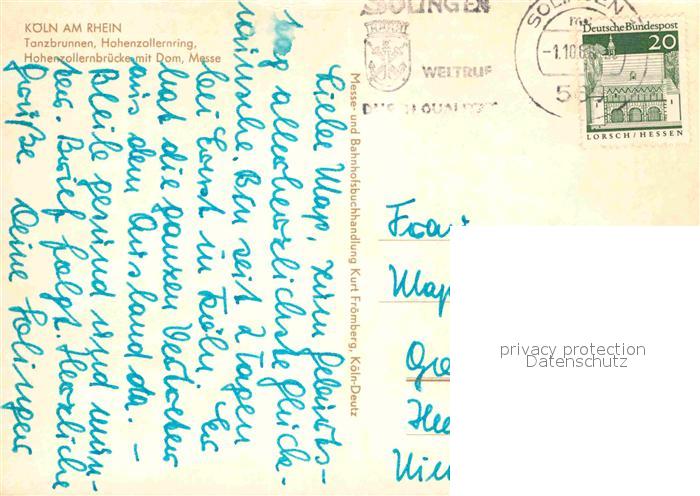 KÖLN AM RHEIN
Tanzbrunnen, Hohenzollernring,
Hohenzollernbrücke mit Dom, Messe
SOLINGEN
WELTRUF
DURCH QUALITÄT
SOLINGEN
-1.10.6
Deutsche Bundespost
20
LORSCH/HESSEN
Messe- und Bahnhofsbuchhandlung Kurt Frömberg, Köln-Deutz
Liebe Map, zum Geburts-
tag allerherzlichste Glück-
wünsche. Bin seit 2 Tagen
bei Horst in Köln. Er
hat die ganzen Vertreter
aus dem Ausland da. –
Bleibe gesund und mun-
ter. Brief folgt. Herzliche
Grüße Deine Solinger
Frau
Map
privacy protection
Datenschutz